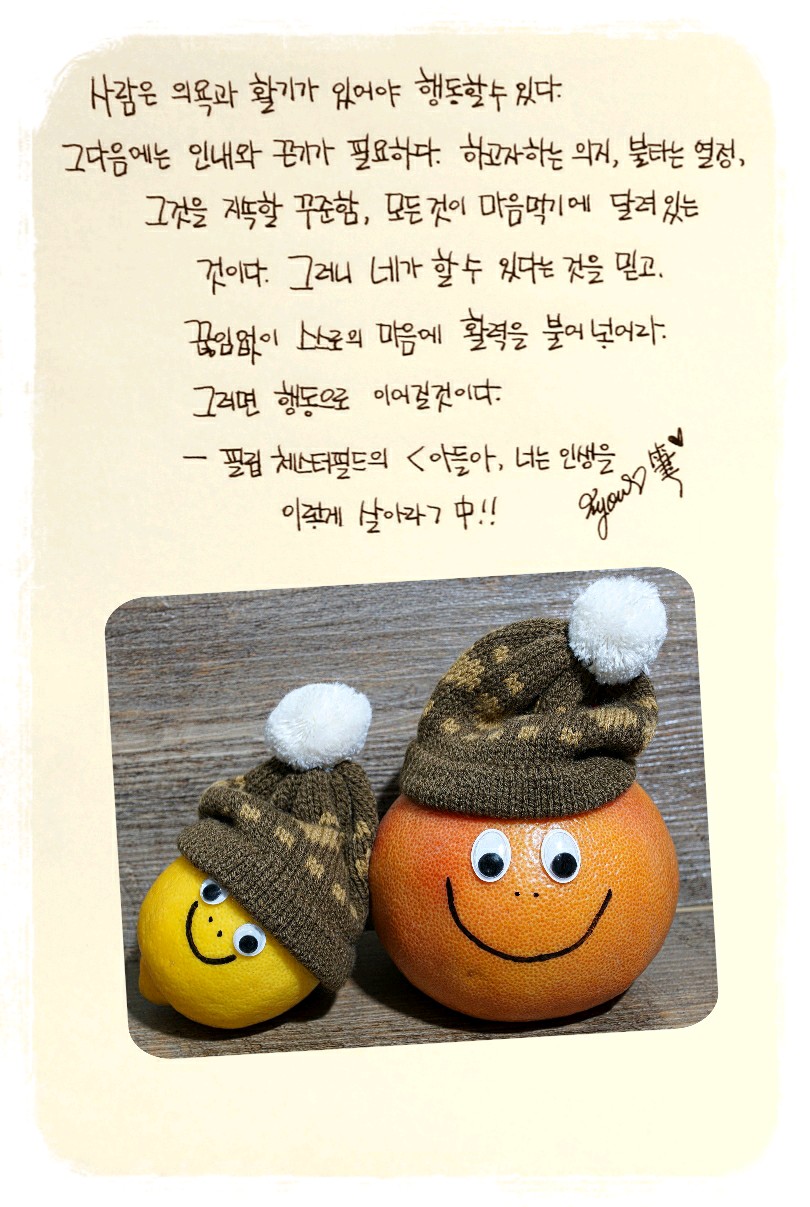 사람은 의욕과 활기가 있어야 행동할수 있다.
그다음에는 인내와 끈기가 필요하다. 하고자하는 의지, 불타는 열정,
그것을 지속할 꾸준함, 모든것이 마음먹기에 달려있는
것이다. 그러니 네가 할수 있다는 것을 믿고.
끊임없이 스스로의 마음에 활력을 불어넣어라.
그러면 행동으로 이어질것이다.
- 필립 체스터필드의 <아들아, 너는 인생을
이렇게 살아라> 中!!